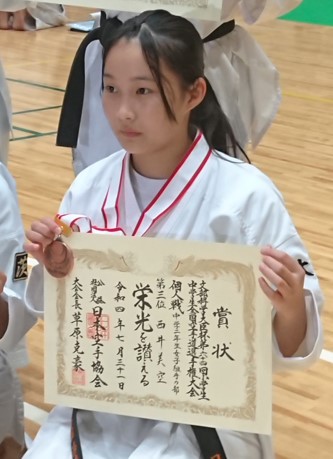 賞状
文部科学大臣杯第六二回小学生
中学生全国空手道選手権大会
個人戦 中学二年生女子組手の部
第三位 西井美空
栄光を讃える
令和四年七月三十一日
公益社団法人 日本空手協会
大会会長 草原克豪